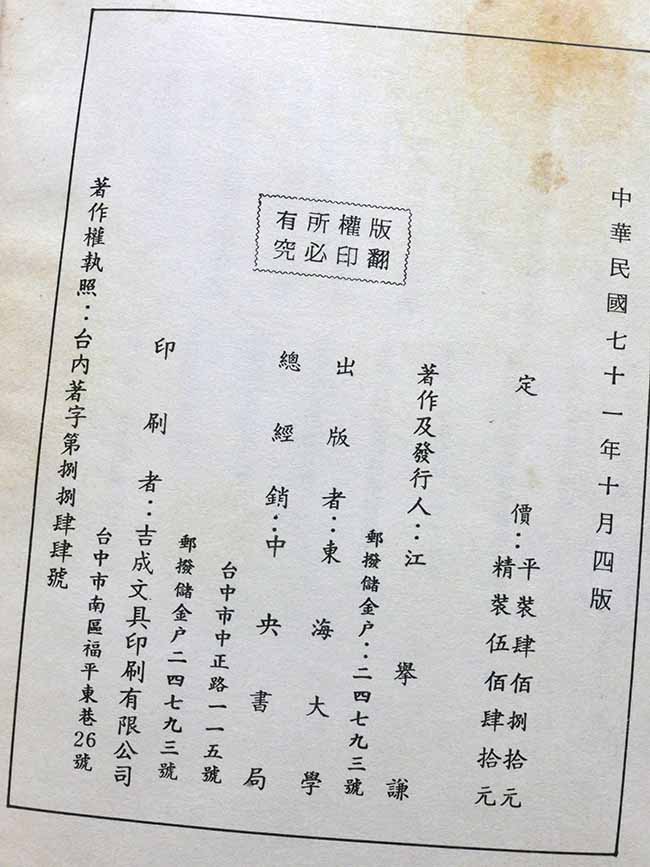 中華民國七十一年十月四版
定價：平裝肆佰捌拾元
精裝伍佰肆拾元
版權所有
翻印必究
著作及發行人：江舉謙
郵撥儲金户：二四七九三號
出版者：東海大學
總經銷：中央書局
台中市中正路一一五號
郵撥儲金户二四七九三號
印刷者：吉成文具印刷有限公司
台中市南區福平東巷26號
著作權執照：台內著字第捌捌肆肆號